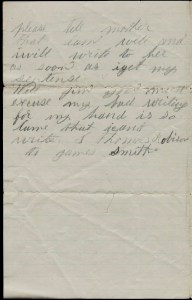 please tell mother
that i am well and
i will write to her
as soon as i get my
sentense
Well
excuse my bad writing
for my hand is so
lame that i cant
write
as games Smith